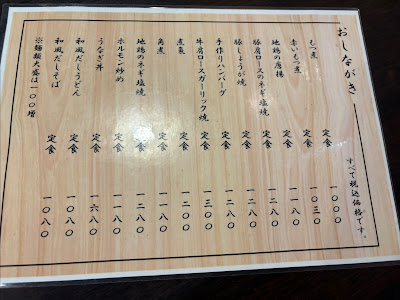 おしながき
すべて税込価格です。
もつ煮 定食 一〇〇〇
赤いもつ煮 定食 一〇三〇
地鶏の唐揚 定食 一一八〇
豚肩ロースのネギ塩焼 定食 一二八〇
豚しょうが焼 定食 一二八〇
手作りハンバーグ 定食 一二八〇
牛肩ロースガーリック焼 定食 一三〇〇
煮魚 定食 一二〇〇
角煮 定食 一一八〇
地鶏のネギ塩焼 定食 一二八〇
ホルモン炒め 定食 一一八〇
うなぎ丼 定食 一六八〇
和風だしうどん 定食 一〇八〇
和風だしそば 定食 一〇八〇
※麺類大盛は一〇〇増